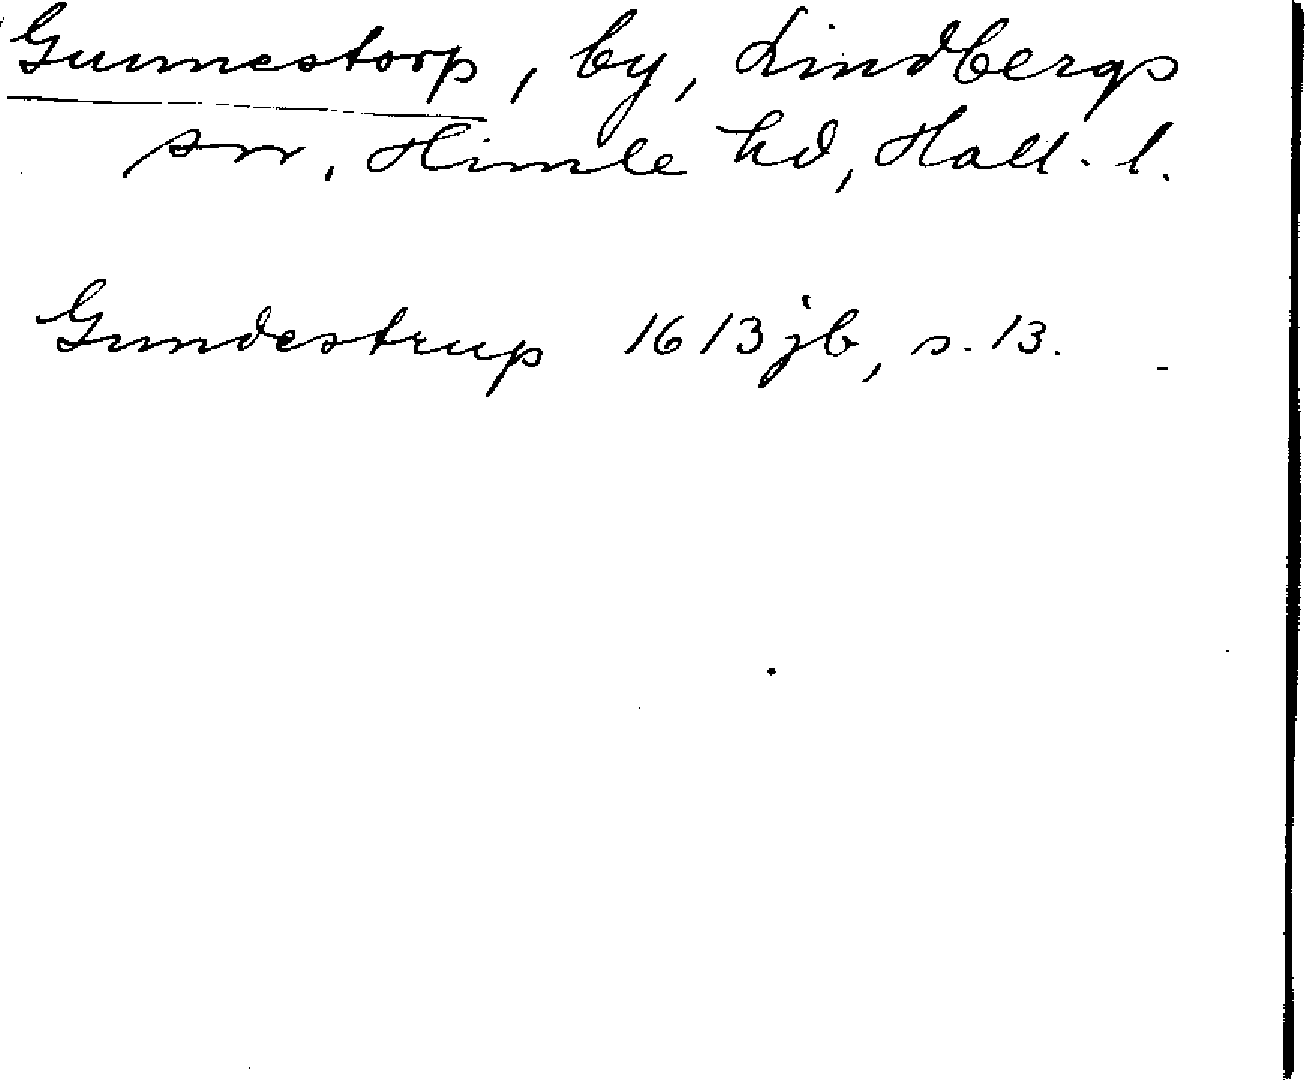 Gunnestorp, by, Lindbergs
sn, Himle hd, Hall. l.
Gundestrup 1613 jb, s. 13.